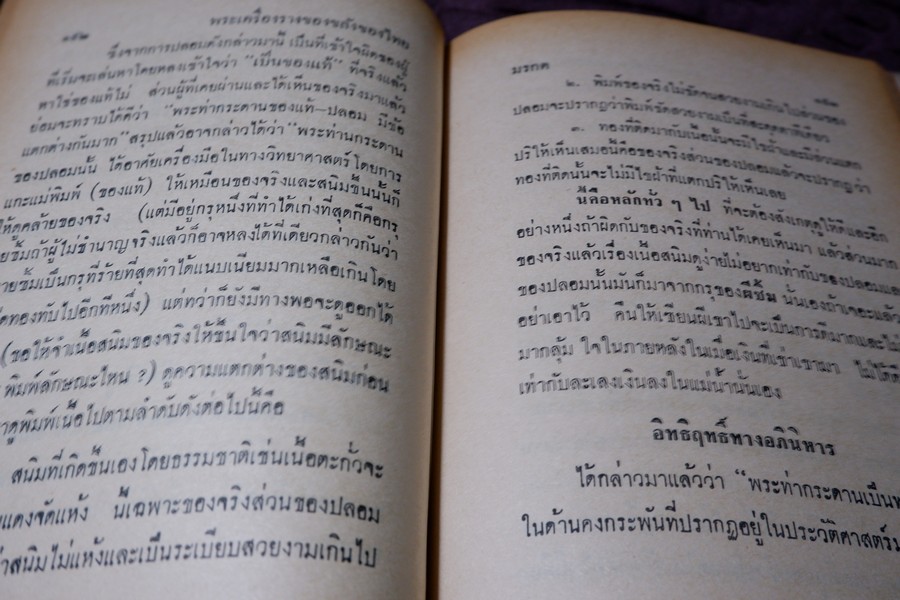 ๑๕๒
พระเครื่องรางของขลังของไทย
ซึ่งจากการปลอมดังกล่าวมานี้ เป็นที่เข้าใจผิดของผู้
ที่เริ่มจะเล่นหาโดยหลงเข้าใจว่า “เป็นของแท้” ที่จริงแล้ว
หาใช่ของแท้ไม่ ส่วนผู้ที่เคยผ่านและได้เห็นของจริงมาแล้ว
ย่อมจะทราบได้ดีว่า “พระท่ากระดานของแท้–ปลอม มีข้อ
แตกต่างกันมาก” สรุปแล้วอาจกล่าวได้ว่า “พระท่ากระดาน
ของปลอมนั้น ได้อาศัยเครื่องมือในทางวิทยาศาสตร์โดยการ
แกะแม่พิมพ์ (ของแท้) ให้เหมือนของจริงและสนิมขึ้นนั้นก็
ให้ดูคล้ายของจริง (แต่มีอยู่กรุหนึ่งที่ทำได้เก่งที่สุดก็คือกรุ
ถ้าผู้ไม่ชำนาญจริงแล้วก็อาจหลงได้ที่เดียวกล่าวกันว่า
เป็นกรุที่ร้ายที่สุดทำได้แนบเนียมมากเหลือเกินโดย
ทองทับไปอีกทีหนึ่ง) แต่ทว่าก็ยังมีทางพอจะดูออกได้
(ขอให้จำเนื้อสนิมของจริงให้ขึ้นใจว่าสนิมมีลักษณะ
พิมพ์ลักษณะไหน ?) ดูความแตกต่างของสนิมก่อน
ดูพิมพ์เนื้อไปตามลำดับดังต่อไปนี้คือ
สนิมที่เกิดขึ้นเองโดยธรรมชาติเช่นเนื้อตะกั่วจะ
แดงจัดแห้ง นี้เฉพาะของจริงส่วนของปลอม
สนิมไม่แห้งและเป็นระเบียบสวยงามเกินไป
มรกต
๑๕๓
๒. พิมพ์ของจริงไม่ชัดจนสวยงามเกินไปส่วนของ
ปลอมจะปรากฏว่าพิมพ์ชัดสวยงามเป็นที่สะดุดตาทีเดียว
๓. ทองที่ติดมากับเนื้อนั้นจะมีไรฝ้าและมีส่วนแตก
ปริให้เห็นเสมอนี้คือของจริงส่วนของปลอมแล้วจะปรากฏว่า
ทองที่ติดนั้นจะไม่มีไรฝ้าที่แตกปริให้เห็นเลย
นี้คือหลักทั่ว ๆ ไป ที่จะต้องสังเกตดูให้ดีและอีก
อย่างหนึ่งถ้าผิดกับของจริงที่ท่านได้เคยเห็นมา แล้วส่วนมาก
ของจริงแล้วเรื่องเนื้อสนิมดูง่ายไม่อยากเท่ากับของปลอมและ
ของปลอมนั้นมันก็มาจากกรุของผีซ้ม นั่นเองถ้าเจอะแล้ว
อย่าเอาไว้ คืนให้เซียนผีเขาไปจะเป็นการดีมากและไม่
มากลุ้ม ใจในภายหลังในเมื่อเงินที่เช่าเขามา ไม่ได้ดี
เท่ากับละเลงเงินลงในแม่น้ำนั่นเอง
อิทธิฤทธิ์ทางอภินิหาร
ได้กล่าวมาแล้วว่า “พระท่ากระดานเป็น
ในด้านคงกระพันที่ปรากฏอยู่ในประวัติศาสตร์